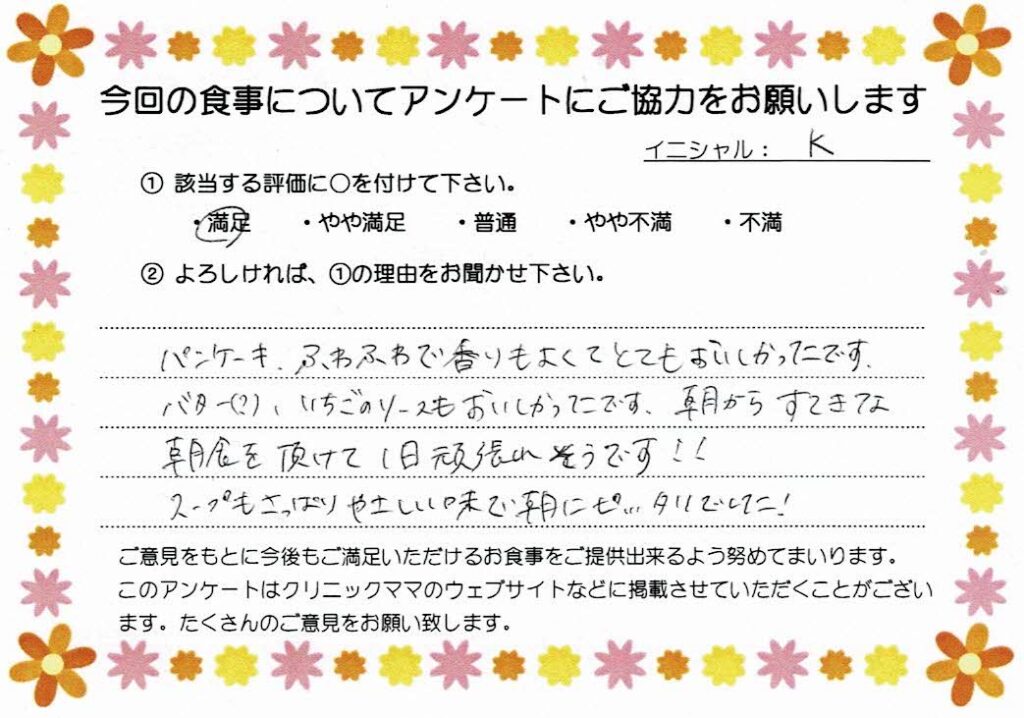 今回の食事についてアンケートにご協力をお願いします
イニシャル： K
① 該当する評価に○を付けて下さい。
・満足 ・やや満足 ・普通 ・やや不満 ・不満
② よろしければ、①の理由をお聞かせ下さい。
パンケーキ、ふわふわで香りもよくてとてもおいしかったです。
バター(?)、いちごのソースもおいしかったです、朝からすてきな
朝食を頂けて1日頑張れそうです!!
スープもさっぱりやさしい味で朝にピッタリでした!
ご意見をもとに今後もご満足いただけるお食事をご提供出来るよう努めてまいります。
このアンケートはクリニックママのウェブサイトなどに掲載させていただくことがござい
ます。たくさんのご意見をお願い致します。